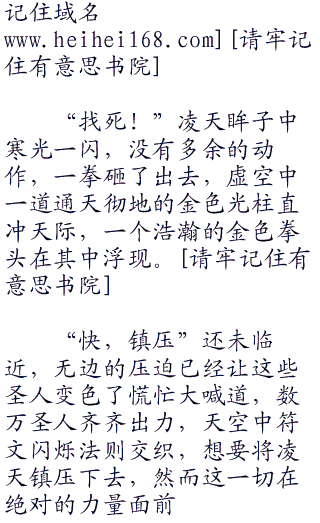 记住域名
www.heihei168.com][请牢记
住有意思书院]
“找死！”凌天眸子中
寒光一闪，没有多余的动
作，一拳砸了出去，虚空中
一道通天彻地的金色光柱直
冲天际，一个浩瀚的金色拳
头在其中浮现。[请牢记住有
意思书院]
“快，镇压”还未临
近，无边的压迫已经让这些
圣人变色了慌忙大喊道，数
万圣人齐齐出力，天空中符
文闪烁法则交织，想要将凌
天镇压下去，然而这一切在
绝对的力量面前